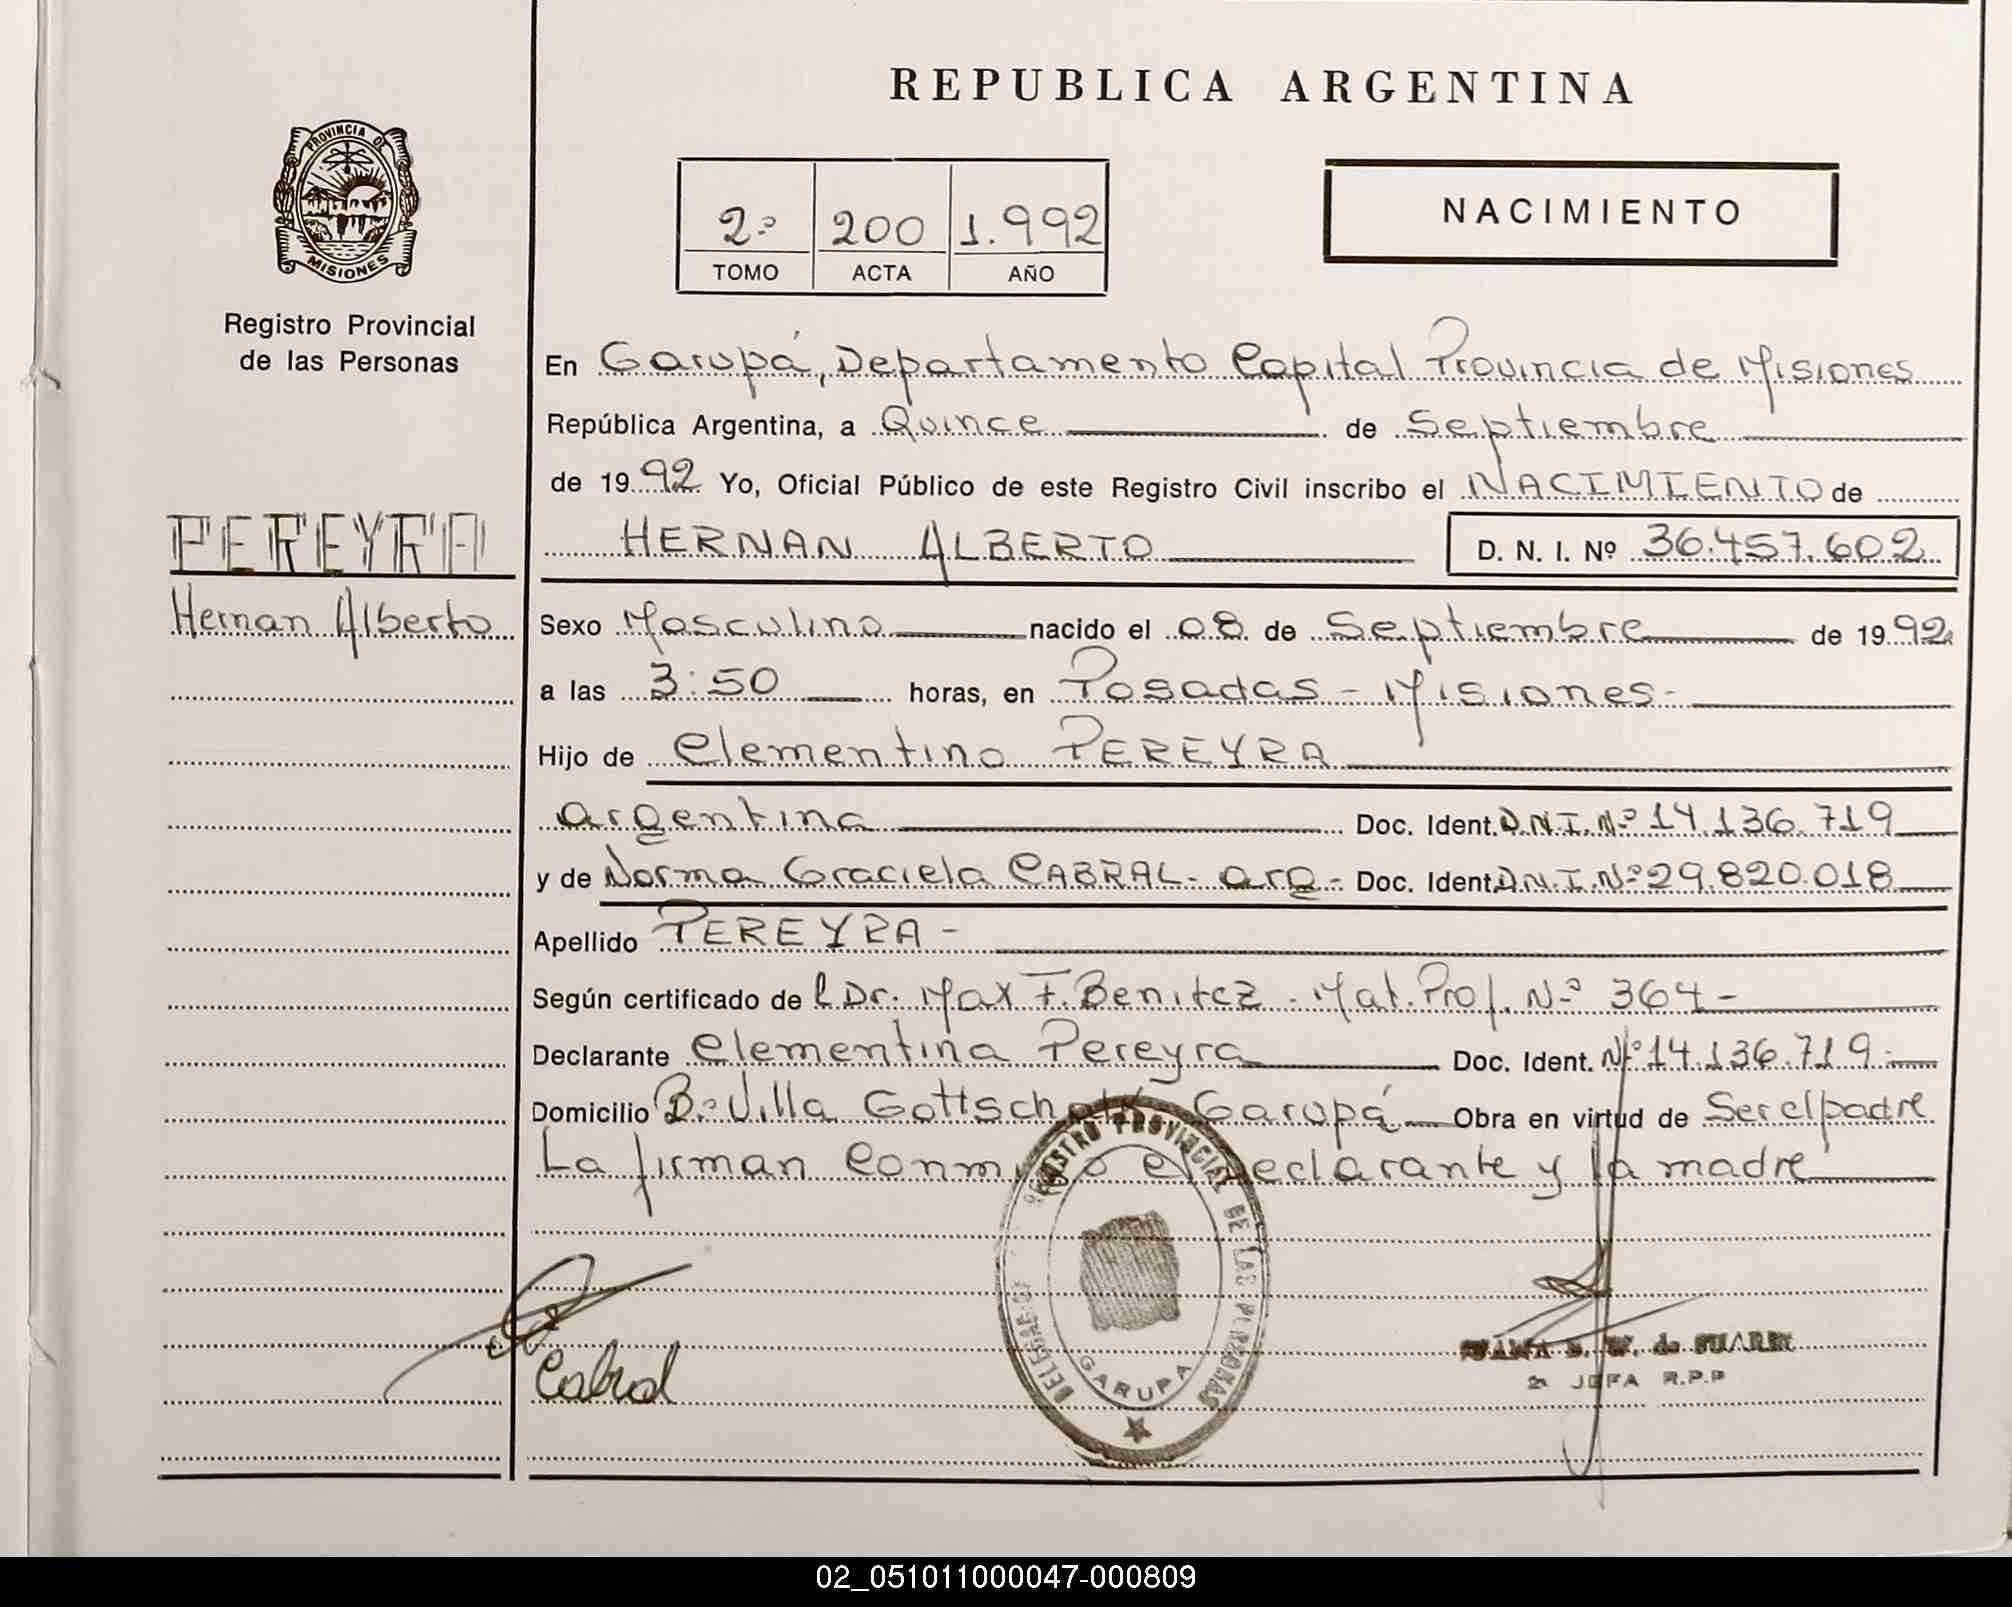 REPUBLICA ARGENTINA
PROVINCIA DE
MISIONES
Registro Provincial
de las Personas
2º 200 1.992
TOMO ACTA AÑO
NACIMIENTO
En Garupá, Departamento Capital Provincia de Misiones
República Argentina, a Quince de Septiembre
de 1992 Yo, Oficial Público de este Registro Civil inscribo el NACIMIENTO de
HERNAN ALBERTO D. N. I. Nº 36.457.602
PEREYRA
Hernan Alberto
Sexo Masculino nacido el 08 de Septiembre de 1992
a las 3:50 horas, en Posadas - Misiones-
Hijo de Clementino PEREYRA
argentina Doc. Ident. D.N.I.Nº 14.136.719
y de Norma Graciela CABRAL- arg- Doc. Ident. D.N.I.Nº 29.820.018
Apellido PEREYRA-
Según certificado de l Dr. Max F. Benitez - Mat. Prof. Nº 364-
Declarante Clementina Pereyra Doc. Ident. Nº 14.136.719-
Domicilio Bº Villa Gottschalk Garupá Obra en virtud de Ser el padre
La firman conmigo el declarante y la madre
REGISTRO PROVINCIAL DE LAS PERSONAS
GARUPA
Cabral
de SUAREZ
2a JEFA R.P.P
02_051011000047-000809